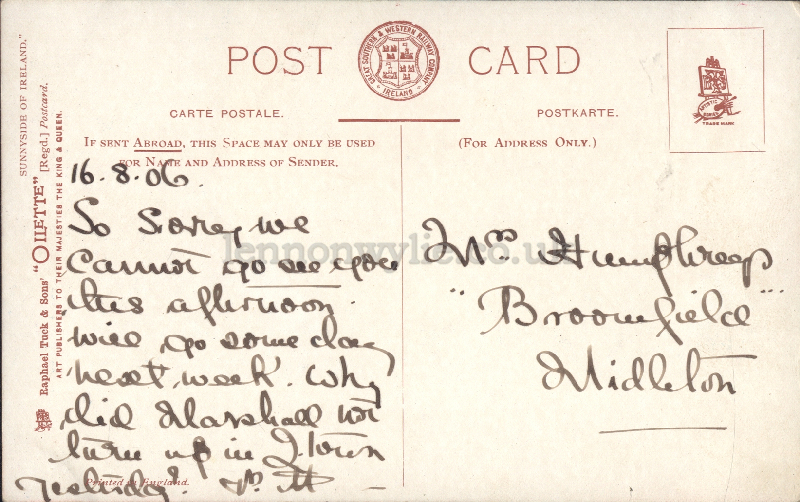 POST CARD
GREAT SOUTHERN & WESTERN RAILWAY COMPANY
IRELAND
CARTE POSTALE.
POSTKARTE.
IF SENT ABROAD, THIS SPACE MAY ONLY BE USED
FOR NAME AND ADDRESS OF SENDER.
(FOR ADDRESS ONLY.)
TRADE MARK
SUNNYSIDE OF IRELAND."
Raphael Tuck & Sons' "OILETTE" [Regd.] Postcard.
ART PUBLISHERS TO THEIR MAJESTIES THE KING & QUEEN.
16.8.06.
So sorry we
cannot go see you
this afternoon.
will go some day
next week. Why
did Marshall not
turn up in Y.town
yesterday?
Printed in England.
lennonwylie.co.uk
Mrs Humphreys
"Broomfield"
Midleton